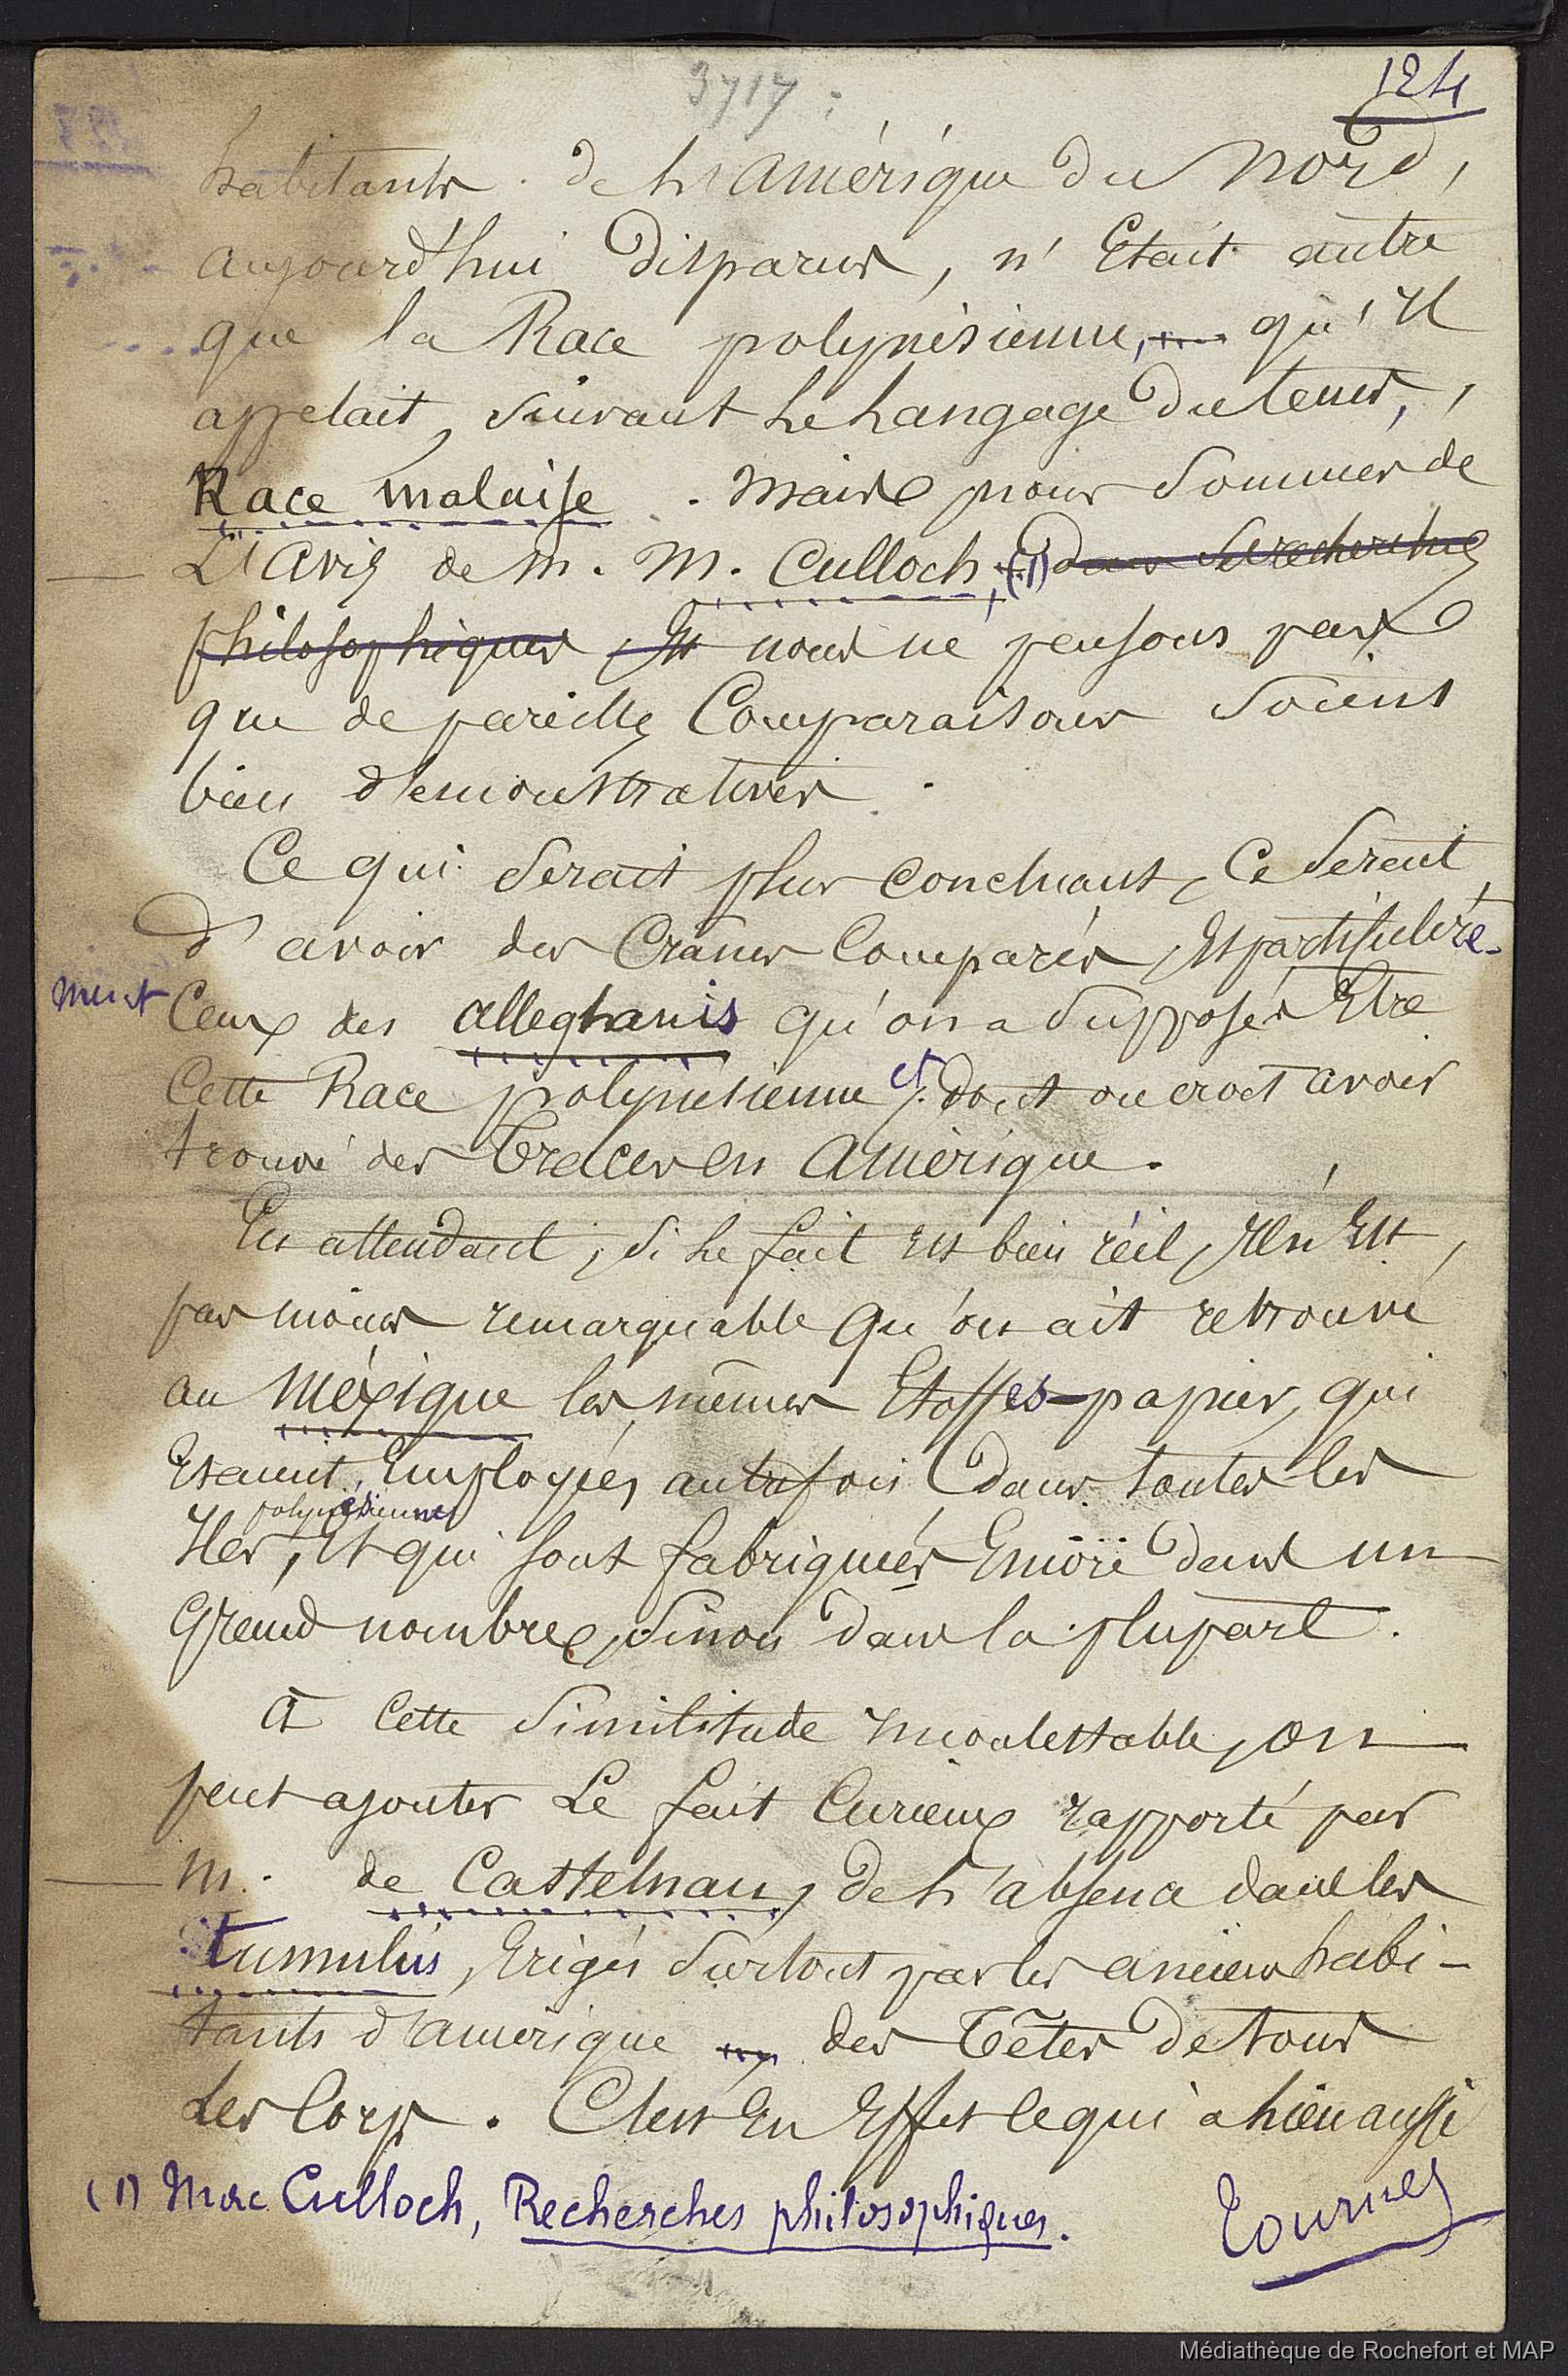 3717
124
habitants de l'amérique du Nord,
aujourd'hui disparus, n'Etait autre
que la Race polynésienne, qu'Il
appelait, suivant le langage du tems,
Race malaise. Mais nous sommes de
L'avis de m. M. Culloch, (1) dans ses recherches
philosophiques, Et nous ne pensons pas
que de pareilles Comparaisons soient
bien démonstratives.
Ce qui serait plus concluant, Ce serait
d'avoir des Crânes Comparés, Et particulière-
ment Ceux des alleghanis qu'on a supposés Etre
Cette Race polynésienne et dont on croit avoir
trouvé des Traces en amérique.
En attendant, si le fait Est bien réel, Il n'Est
pas moins remarquable qu'on ait retrouvé
au Méxique les mêmes Etoffes-papier, qui
Etaient Employées autrefois dans toutes les
polynésiennes
Iles, Et qui sont fabriquées Encore dans un
Grand nombre, sinon dans la plupart.
A Cette similitude Incontestable, on
peut ajouter Le fait Curieux rapporté par
M. de Castelnau, de l'absence dans les
tumulus, Erigés surtout par les anciens habi-
tants d'amérique des Têtes de tous
Les Corps. C'est En Effet ce qui a lieu aussi
(1) Mac Culloch, Recherches philosophiques.
Tournez
Médiathèque de Rochefort et MAP